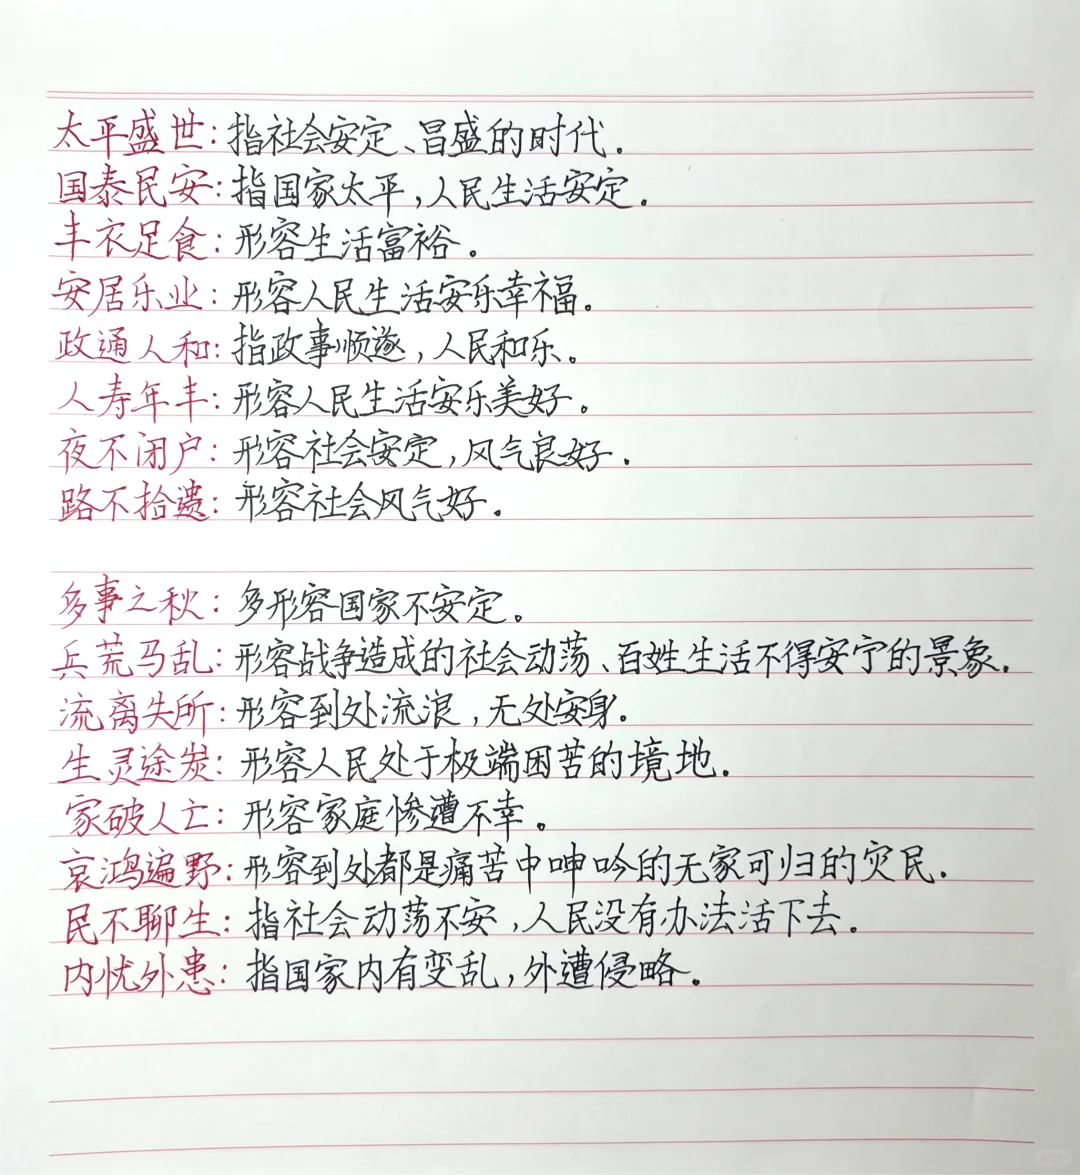 太平盛世：指社会安定、昌盛的时代.
国泰民安：指国家太平,人民生活安定.
丰衣足食：形容生活富裕。
安居乐业：形容人民生活安乐幸福。
政通人和：指政事顺遂,人民和乐。
人寿年丰：形容人民生活安乐美好。
夜不闭户：形容社会安定,风气良好.
路不拾遗：形容社会风气好.
多事之秋：多形容国家不安定。
兵荒马乱：形容战争造成的社会动荡、百姓生活不得安宁的景象.
流离失所：形容到处流浪,无处安身.
生灵涂炭：形容人民处于极端困苦的境地.
家破人亡：形容家庭惨遭不幸。
哀鸿遍野：形容到处都是痛苦中呻吟的无家可归的灾民.
民不聊生：指社会动荡不安,人民没有办法活下去.
内忧外患：指国家内有变乱,外遭侵略.